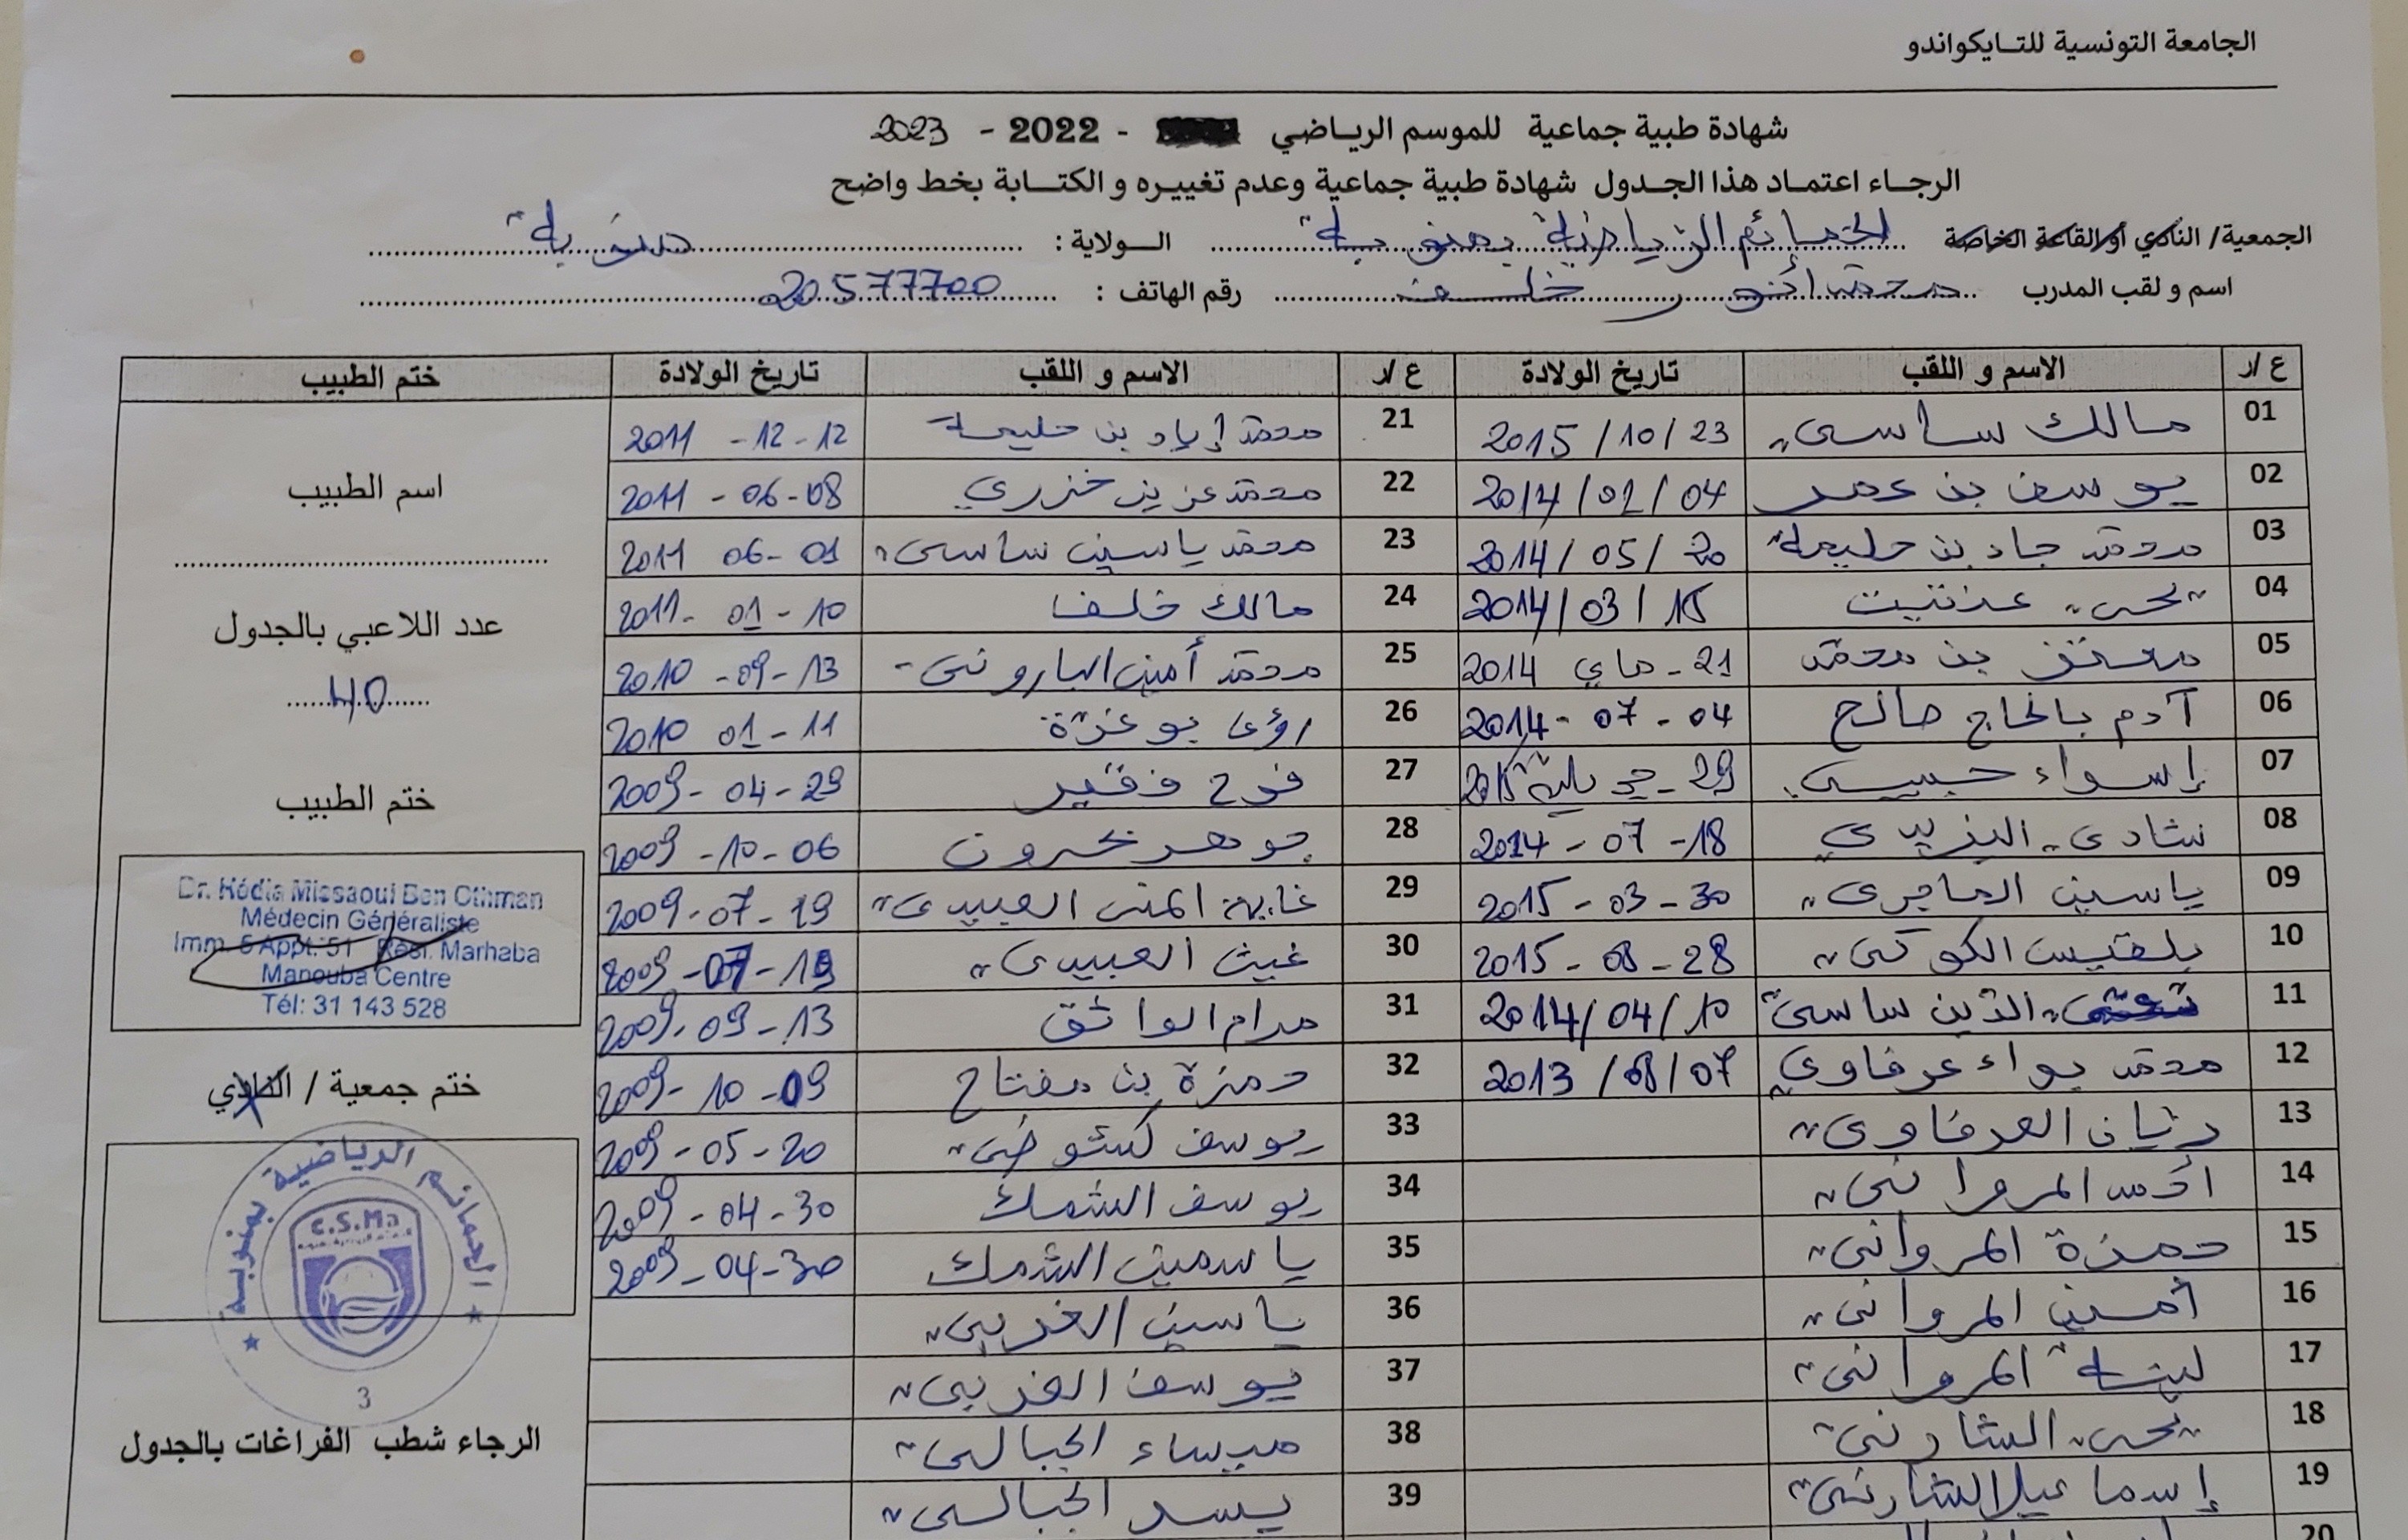 الجامعة التونسية للتايكواندو
شهادة طبية جماعية للموسم الرياضي - 2022 - 2023
الرجاء اعتماد هذا الجدول شهادة طبية جماعية وعدم تغييره و الكتابة بخط واضح
الجمعية/ النادي أو القاعة الخاصة الحمائم الرياضية بمنوبة الولاية : منوبة
اسم و لقب المدرب محمد أنور خلف رقم الهاتف : 20577700
ع/ر الاسم و اللقب تاريخ الولادة ع/ر الاسم و اللقب تاريخ الولادة ختم الطبيب
01 مالك ساسي 23/10/2015 21 محمد إياد بن حليمة 12-12-2011
02 يوسف بن عمر 04/01/2014 22 محمد عزيز خزري 08-06-2011
03 محمد جاد بن حليمة 20/05/2014 23 محمد ياسين ساسي 01-06 2011
04 يحي 15/03/2014 24 مالك خلف 10-01-2011
05 معتز بن محمد 21-ماي 2014 25 محمد أمين الباروني 13-09-2010
06 آدم بالحاج صالح 04-07-2014 26 رؤى بوعزة 11-01 2010
07 إسراء حبيبي 29-جويلية 2015 27 فرح فقير 29-04-2009
08 شادي اليزيدي 18-07-2014 28 جوهر نحرون 06-10-2009
09 ياسين الماجري 30-03-2015 29 غاية المنى العبيدي 19-07-2009
10 بلقيس الكوكي 28-08-2015 30 غيث العبيدي 19-07-2009
11 الدين ساسي 10/04/2014 31 مرام الواثق 13-09-2009
12 محمد براء عرفاوي 07/08/2013 32 حمزة بن مفتاح 09-10-2009
13 العرفاوي 33 يوسف 20-05-2009
14 المرواني 34 يوسف الشمك 30-04-2009
15 حمزة المرواني 35 ياسمين الشمك 30-04-2009
16 أمين المرواني 36 ياسين الغربي
17 لينة المرواني 37 يوسف الغربي
18 يحي الشارني 38 ميساء الجبالي
19 إسماعيل الشارني 39 يسر الجبالي
20
اسم الطبيب
عدد اللاعبي بالجدول
40
ختم الطبيب
Dr. Hédia Missaoui Ben Othman
Médecin Généraliste
Imm. 5 Appt. 51 Rési. Marhaba
Manouba Centre
Tél: 31 143 528
ختم جمعية / النادي
الحمائم الرياضية بمنوبة
C.S.Ma
3
الرجاء شطب الفراغات بالجدول